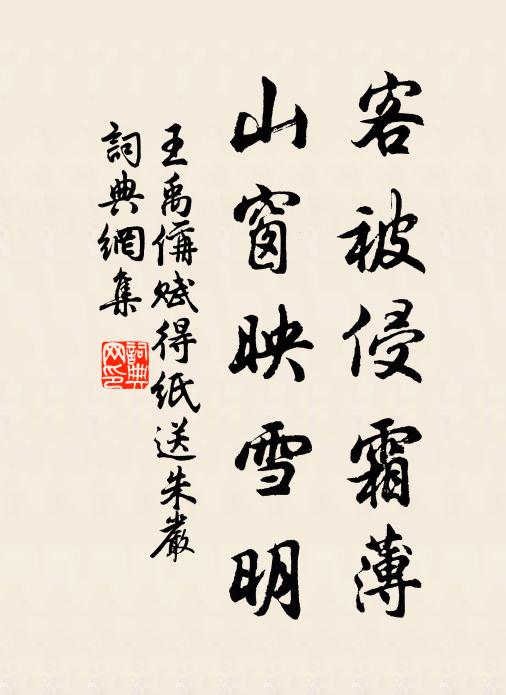 客被侵霜薄
山窗映雪明
王禹偁賦得紙送朱嚴
詞典網集
詞典網印